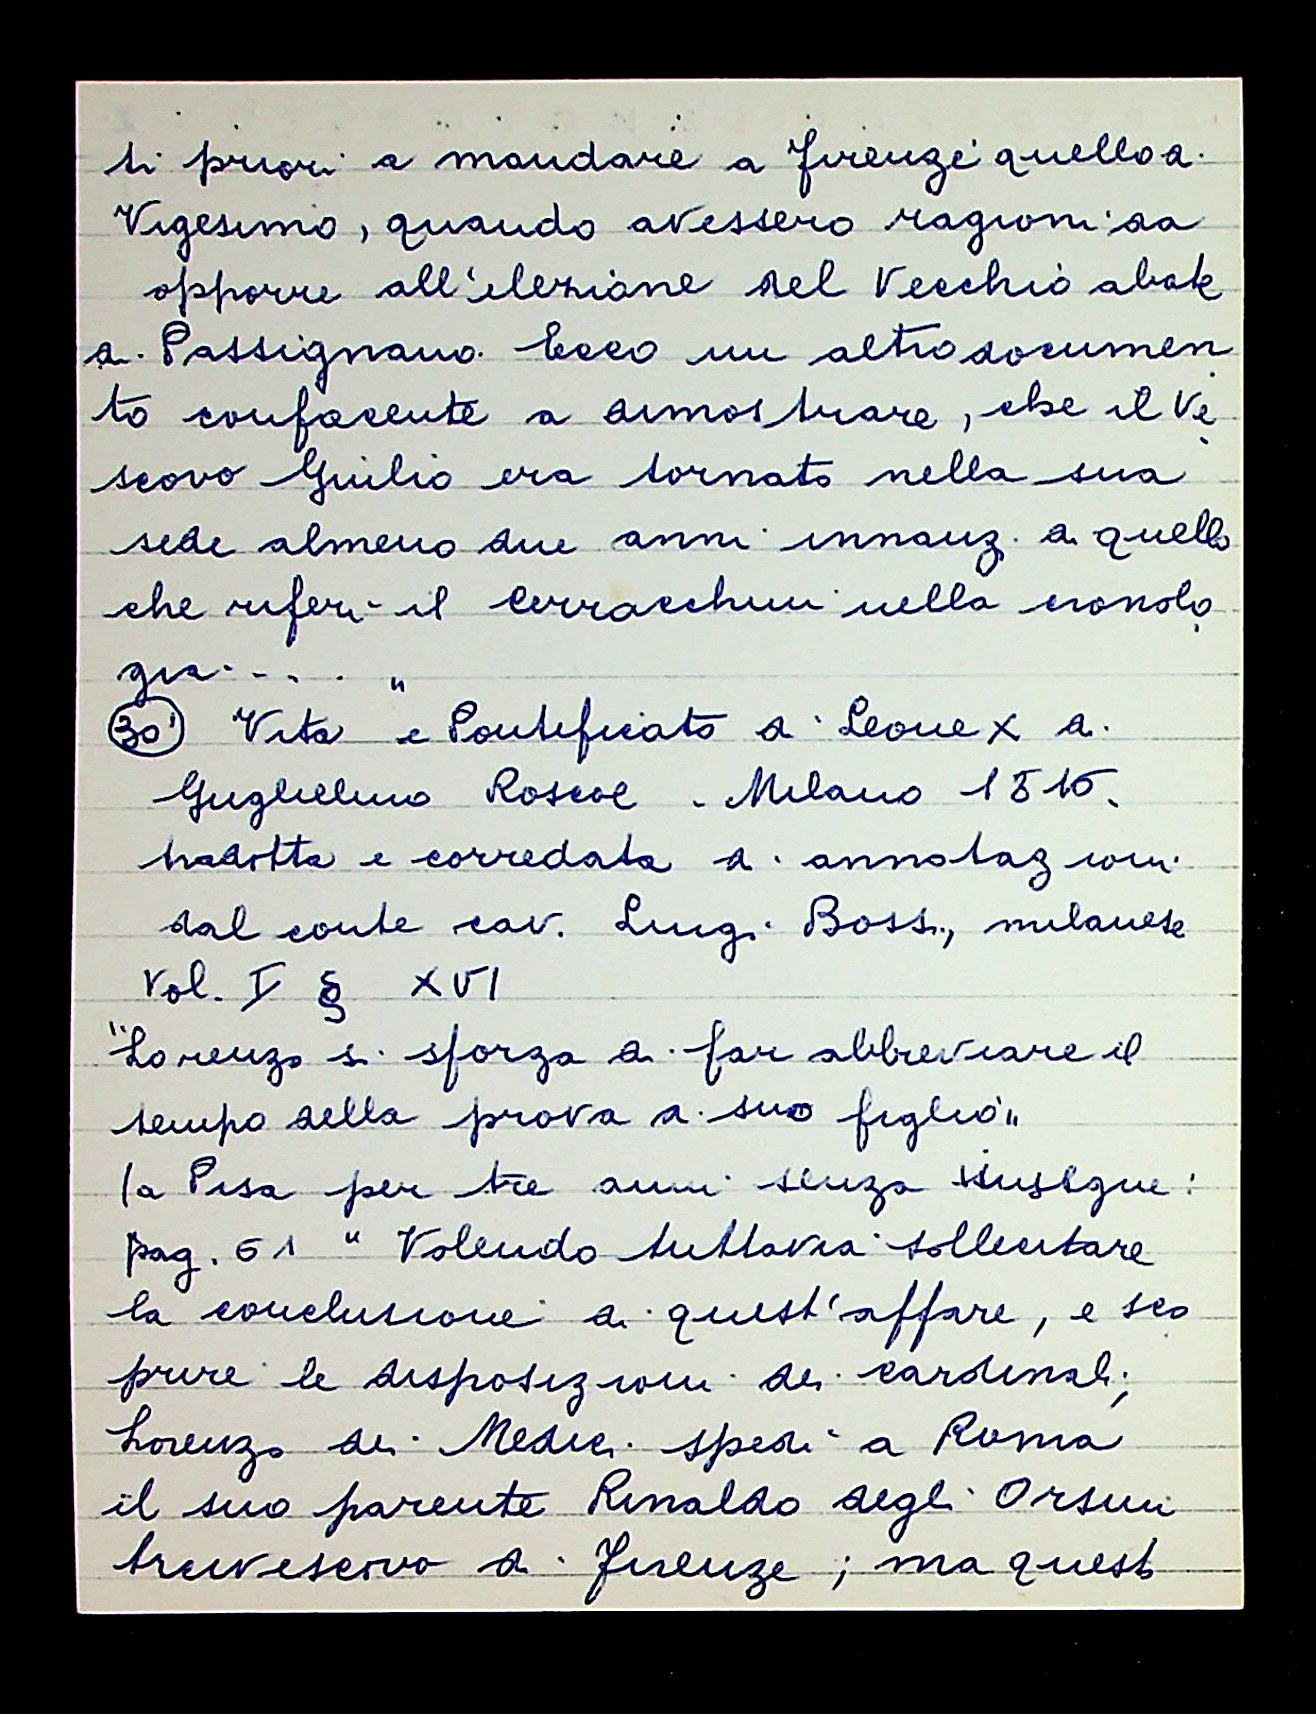 ti priori a mandare a Firenze quello di
Vigesimo, quando avessero ragioni da
opporre all'elezione del Vecchio abate
di Passignano. Ecco un altro documen
to confacente a dimostrare, che il Ve
scovo Giulio era tornato nella sua
sede almeno due anni innanzi a quello
che riferì il Cerracchini nella cronolo
gia.... "
30) Vita e Pontificato di Leone X di
Guglielmo Roscoe - Milano 1816.
tradotta e corredata di annotazioni
dal conte cav. Luigi Bossi, milanese
Vol. I § XVI
"Lorenzo si sforza di far abbreviare il
tempo della prova di suo figlio"
(a Pisa per tre anni senza insegne:
pag. 61 " Volendo tuttavia sollecitare
la conclusione di quest'affare, e sco
prire le disposizioni dei cardinali,
Lorenzo dei Medici spedì a Roma
il suo parente Rinaldo degli Orsini
arcivescovo di Firenze ; ma questi